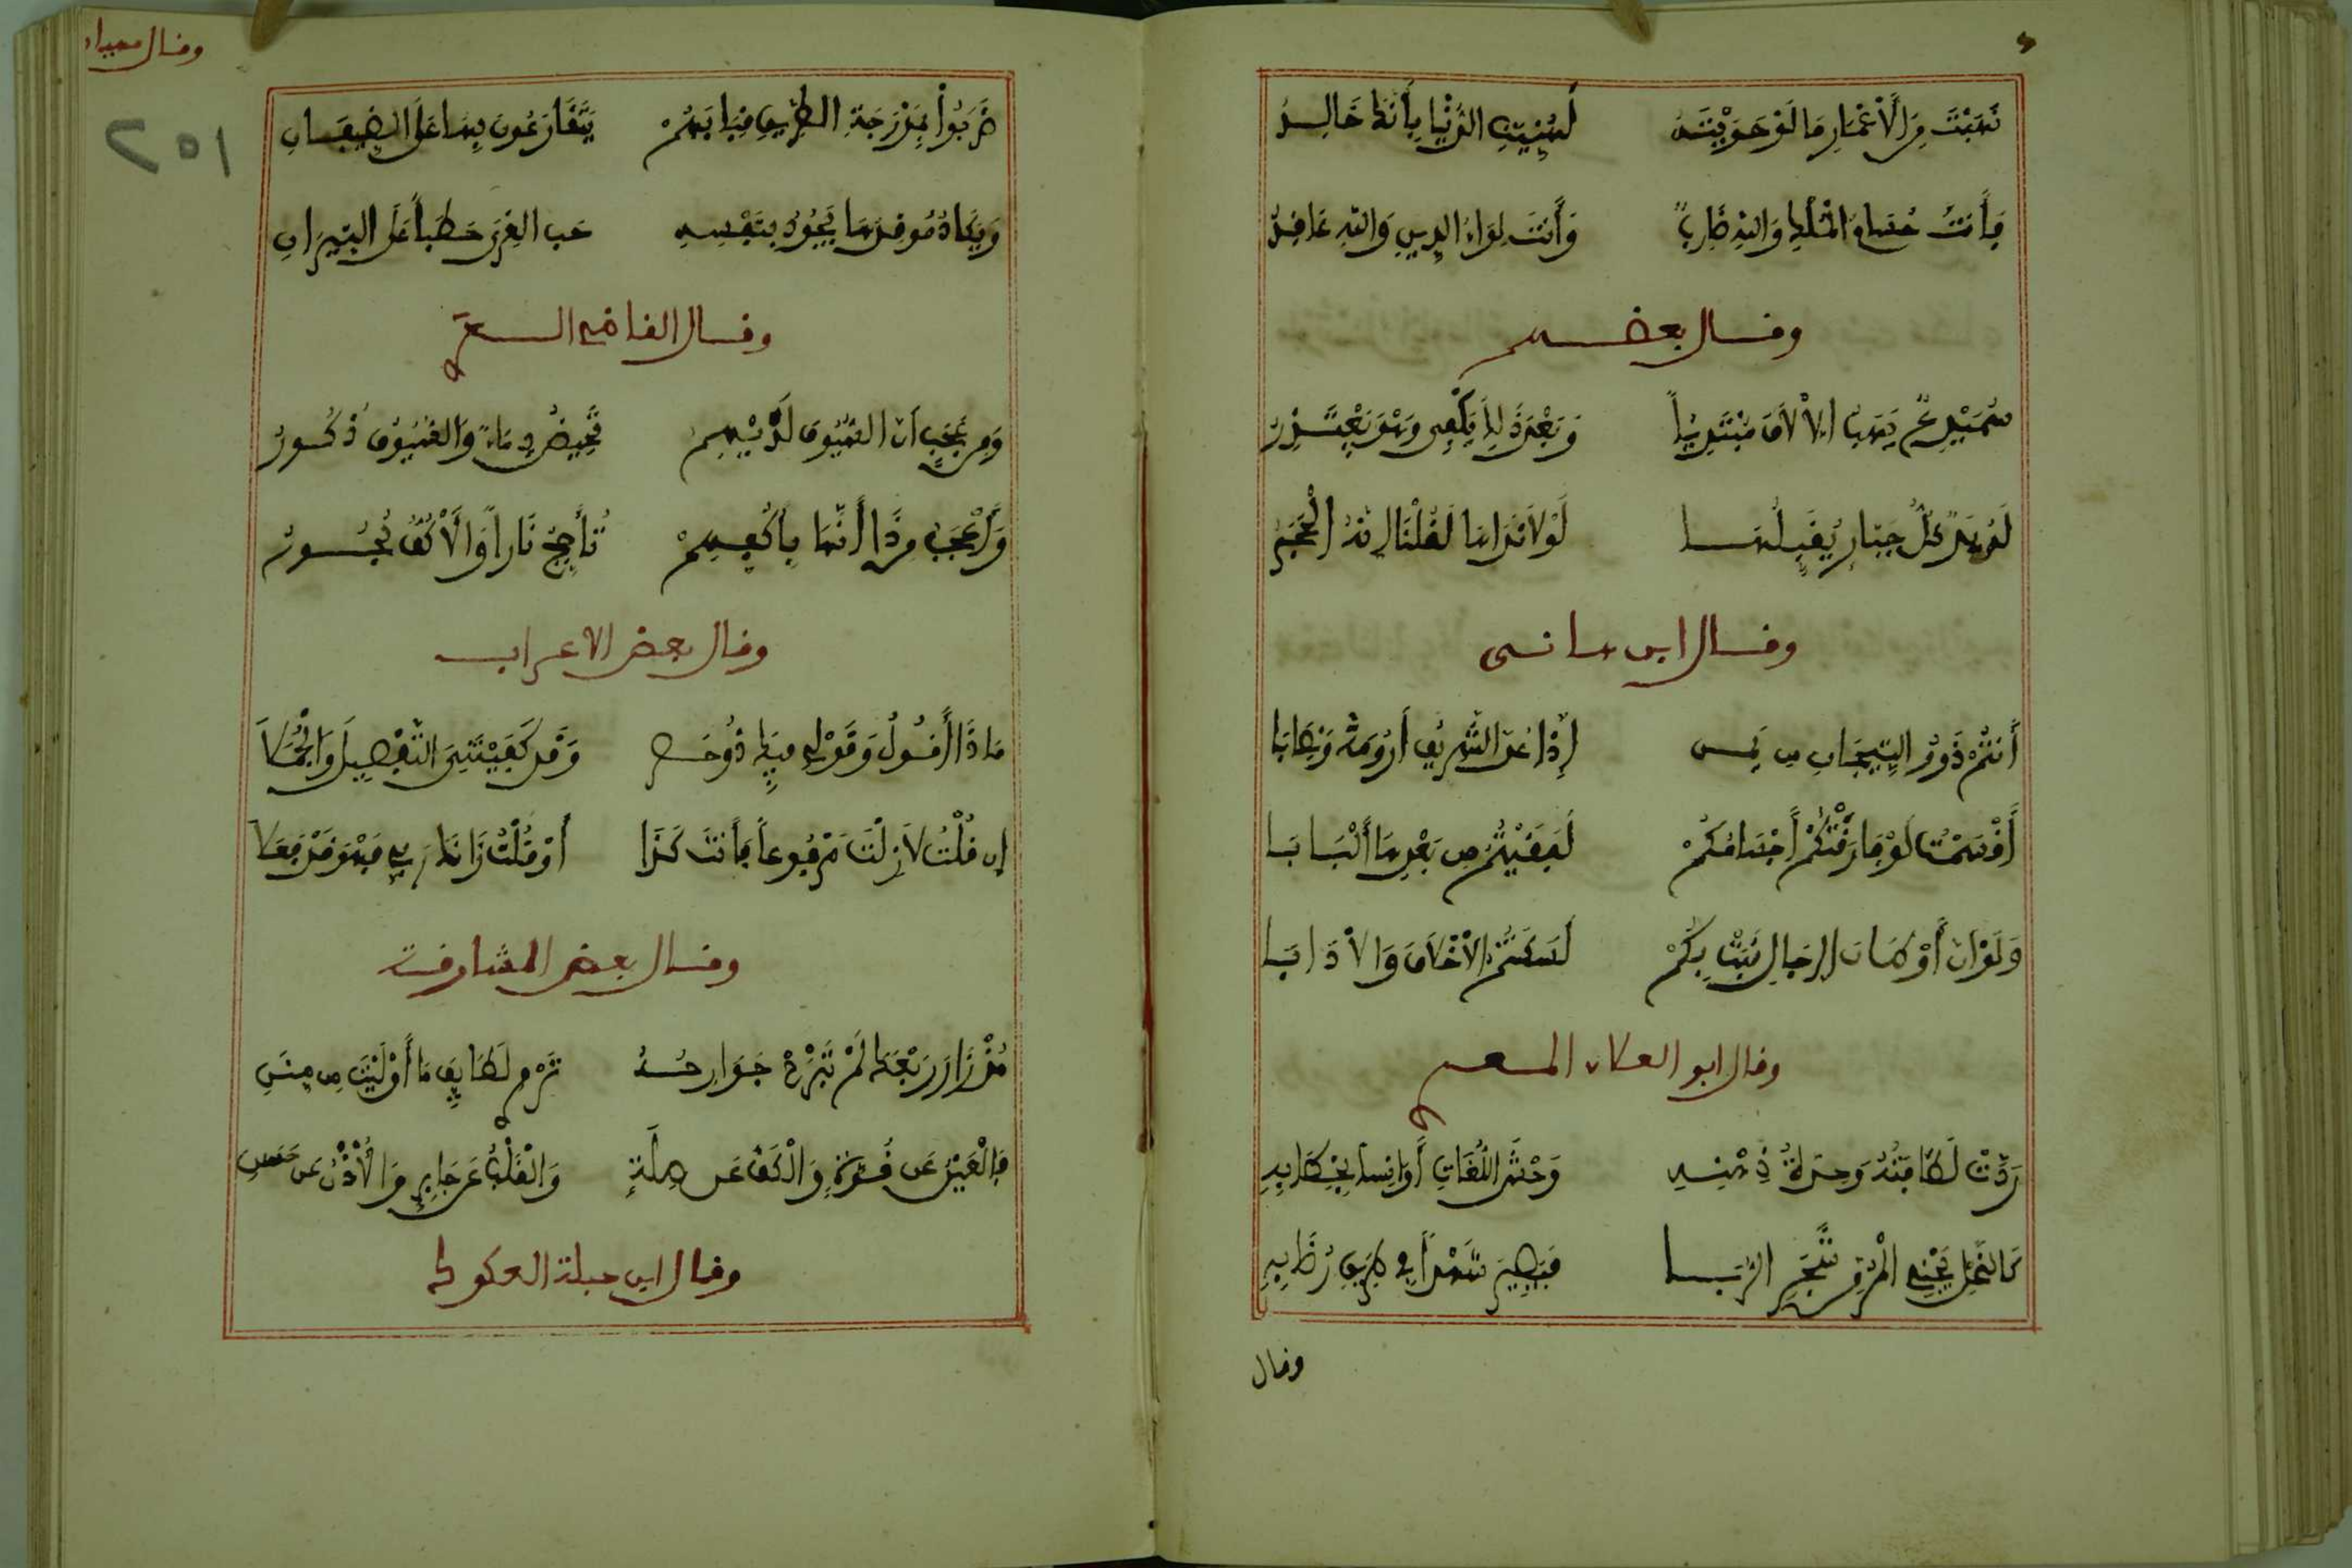 نَهَبْتَ مِنَ الْأَعْمَارِ مَا لَوْ حَوَيْتَهُ لَهُنِّيَتِ الدُّنْيَا بِأَنَّكَ خَالِدُ
فَأَنْتَ حُسَامُ الْمُلْكِ وَاللهُ ضَارِبٌ وَأَنْتَ لِوَاءُ الدِّينِ وَاللهُ عَاقِدُ
وقال بعضهم
سُمَيْدِعٌ يَهَبُ الْآلَافَ مُبْتَدِياً وَبَعْدَ ذَلِكَ يُلْفِي وَهْوَ يَعْتَذِرُ
لَهُ يَدٌ كُلُّ جَبَّارٍ يُقَبِّلُهَا لَوْلَا نَدَاهَا لَقُلْنَا إِنَّهَا الْحَجَرُ
وقال ابن هانى
أَنْتُمْ ذَوُو التِّيجَانِ مِن يَمَنٍ إِذَا عُدَّ الشَّرِيفُ أَرُومَةً وَنِصَابَا
أَقْسَمْتُ لَوْ فَارَقْتُكُمْ أَجْسَامُكُمْ لَبَقِيتُمُ مِن بَعْدِهَا أَلْبَابَا
وَلَوْ أَنَّ أَوْطَانَ الدِّيَارِ نَبَتْ بِكُمْ لَسَكَنْتُمُ الْأَخْلَاقَ وَالْآدَابَا
وقال ابو العلاء المعرى
رَدَّتْ لَطَافَتُهُ وَحِدَّةُ ذِهْنِهِ وَحْشَ اللُّغَاتِ أَوَانِساً بِخِطَابِهِ
كَالنَّحْلِ يَجْنِي الْمُرَّ مِنْ شَجَرِ الرُّبَا فَيَصِيرُ شَهْداً فِي طَرِيقِ رُضَابِهِ
وقال
وقال مهيار
١٥٢
ضَرَبُوا بِمَدْرَجَةِ الطَّرِيقِ قِبَابَهُمْ يَتَقَارَعُونَ بِهَا عَلَى الضِّيفَانِ
وَيَكَادُ مُوقِدُهَا يَجُودُ بِنَفْسِهِ حُبَّ الْقِرَى حَطَباً عَلَى النِّيرَانِ
وقال القاضي السعيد
وَمِن عَجَبٍ أَنَّ السُّيُوفَ لَدَيْهِمُ تَحِيضُ دِمَاءً وَالسُّيُوفُ ذُكُورُ
وَأَعْجَبُ مِن ذَا أَنَّهَا بِأَكُفِّهِمْ تَأَجَّجُ نَاراً وَالْأَكُفُّ بُحُورُ
وقال بعض الاعراب
مَاذَا أَقُولُ وَقَوْلِي فِيكَ ذُو حَصَرٍ وَقَدْ كَفَيْتَنِيَ التَّفْصِيلَ وَالْجُمَلَا
إِن قُلْتُ لَا زِلْتَ مَرْفُوعاً فَأَنْتَ كَذَا أَوْ قُلْتُ زَانَكَ رَبِّي فَهْوَ قَدْ فَعَلَا
وقال بعض المشارقة
مُذْ زَارَ رَبْعَكَ لَمْ تَبْرَحْ جَوَارِحُهُ تَرْوِي لَطَايِفَ مَا أَوْلَيْتَ مِن مِنَنِ
فَالْعَيْنُ عَن قُرَّةٍ وَالْكَفُّ عَن صِلَةٍ وَالْقَلْبُ عَن جَابِرٍ وَالْأُذْنُ عَن حَسَنِ
وقال ابن جبلة العكوك